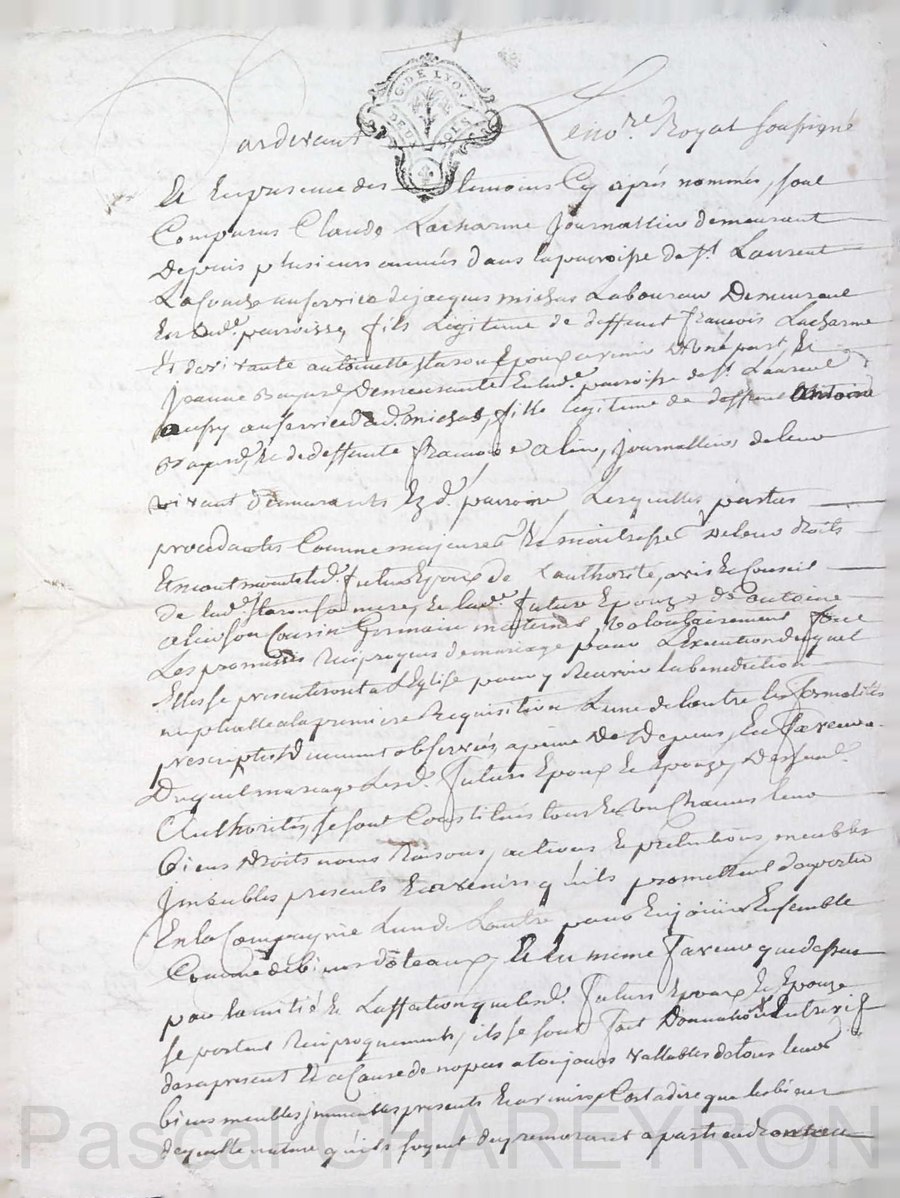 G. DE LYON
DEUX SOLS
Pardevant Le no.re Royal soussigné
Et en presence des temoins Cy après nommés, sont
Comparus Claude Lacharme journallier demeurant
Depuis plusieurs années dans la parroisse de St. Laurent
au service de jacques michas Laboureur Demeurant
en lad.e parroisse, fils Légitime de deffunt francois Lacharme
Et de vivante antoinette Epoux avenir d'une part, Et
jeanne Demeurante en lad.e parroisse de St. Laurent
aussy au service dud. michas, fille legitime de deffunt Antoine
Et de deffunte francoise alin, journalliers de leur
vivant demeurants Ez d. parroisse, Lesquelles parties
procedantes Comme majeures Et maitresses de leur droits
Et neantmoins led. futur Epoux de L'authorité, avis Et Conseil
de lad.e sa mere, Et lad.e future Epouze de antoine
alin son Cousin Germain maternel, volontairement font
Les promesses reciproques de mariage pour L'execution duquel
Elles se presenteront a L'Eglise pour y Recevoir la benediction
nuptialle a la premiere Requisition L'une de L'autre les formalités
prescriptes Dument observées, a peine De Depens, En faveur
Duquel mariage Lesd. futurs Epoux Et Epouze,
Authorités se sont Constitués tous Et un Chacun leur
biens Droits noms Raisons, actions Et pretentions, meubles
jmeubles presents Et avenirs qu'ils promettent d'aporter
En la Compagnie L'un de L'autre pour En joüir Ensemble
Comme de biens dôteaux, Et En même faveur que dessus
pour l'amitié Et L'affection que lesd. futurs Epoux Et Epouze
se portent reciproquement, ils se sont fait Donnation Entrevif
des a present Et a Cause de nopces a toujours vallables de tous leurs
biens meubles jmmeubles presents Et avenirs C'est a dire que les biens
de quelle nature qu'ils soyent du premourant apartiendront au
Pascal CHAREYRON